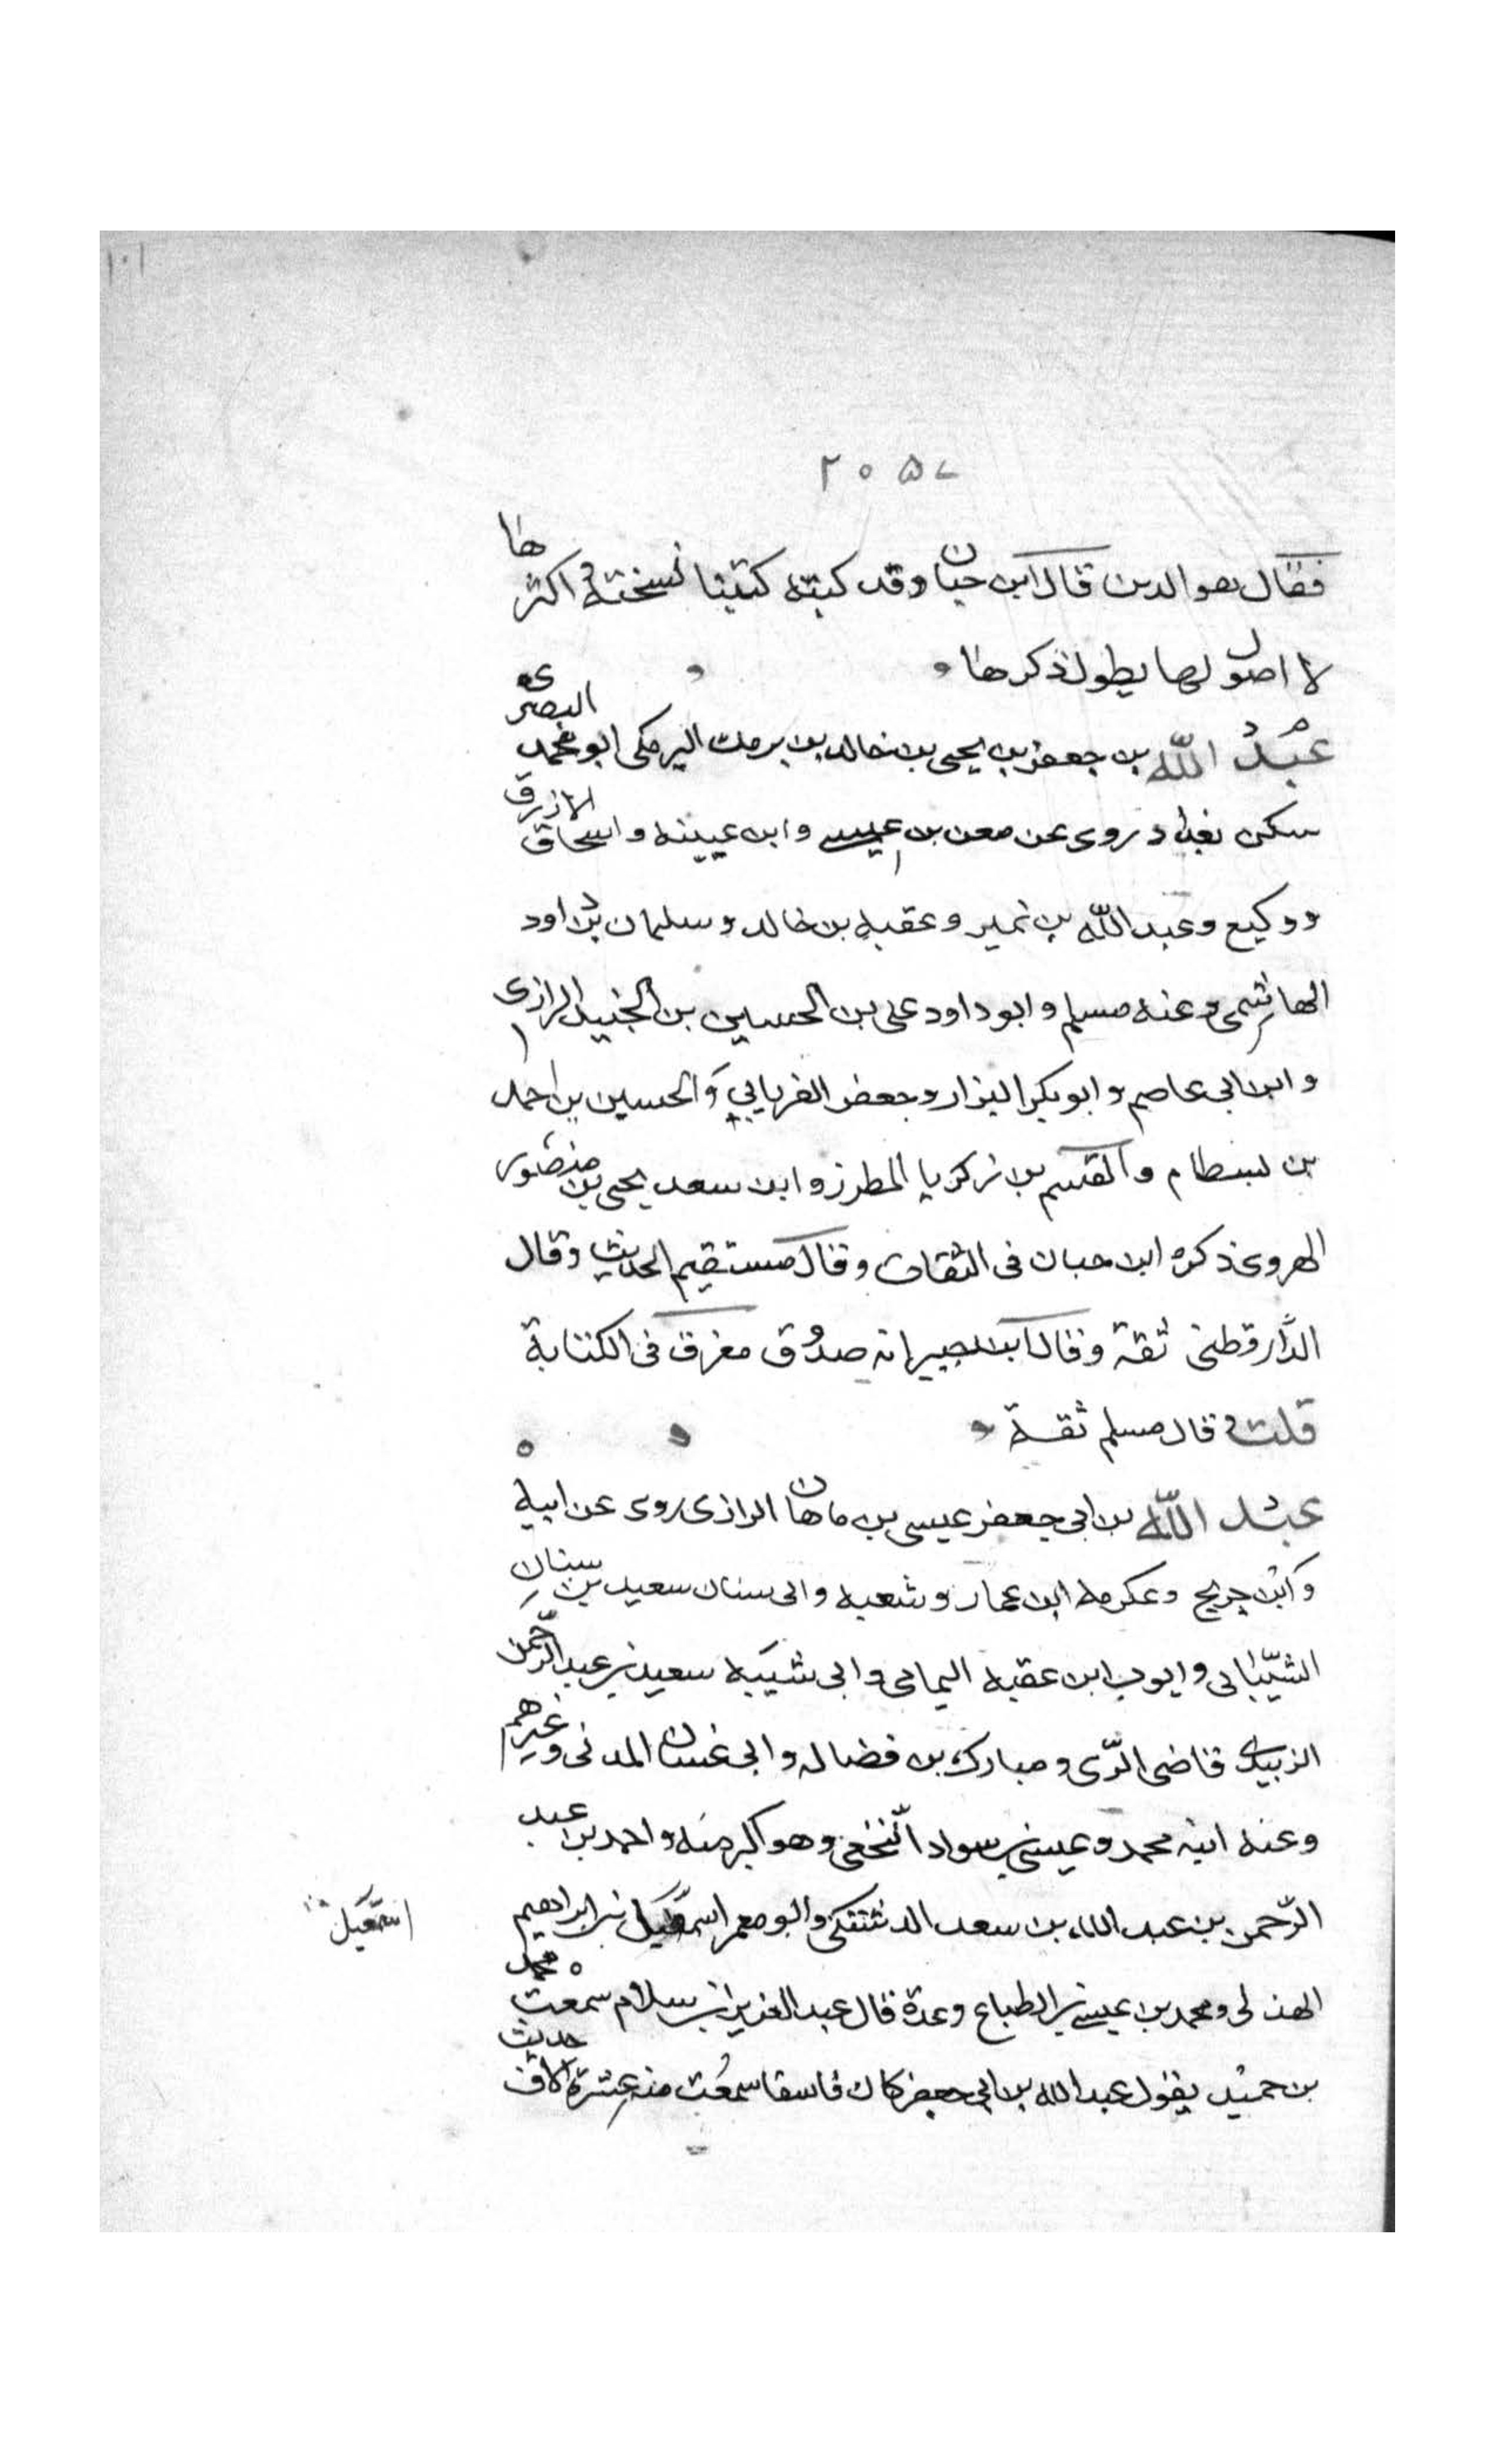 ١٠١
٢٠٥٧
فقال هو الدين قال ابن حبان وقد كبته كتبنا نسخته اكثرها
لا اصول لها يطول ذكرها
عبد الله بن جعفر بن يحيى بن خالد بن برمك البرمكى ابو محمد البصرى
سكن بغداد روى عن معن بن عيسى وابن عيينه واسحاق الازرق
ووكيع وعبد الله بن نمير وعقبه بن خالد وسليمان بن داود
الهاشمى وعنه مسلم وابو داود على بن الحسين بن الجنيد الرازى
وابن ابى عاصم وابو بكر البزار وجعفر الفريابي والحسين بن احمد
بن بسطام والقسم بن زكريا المطرز وابن سعد يحيى بن منصور
الهروى ذكره ابن حبان فى الثقات وقال مستقيم الحديث وقال
الدارقطنى ثقة وقال انه صدوق معرق فى الكتابة
قلت قال مسلم ثقة
عبد الله بن ابى جعفر عيسى بن ماهان الرازى روى عن ابيه
وابن جريج وعكرمه ابن عمار وشعبه وابى سنان سعيد بن سنان
الشيبانى وايوب ابن عقبه اليمامى وابى شيبه سعيد بن عبد الرحمن
الزبيدى قاضى الرى ومبارك بن فضاله وابى غسان المدنى وغيرهم
وعنه ابنه محمد وعيسى بن سواد النخعى وهو اكبر منه واحمد بن عبد
الرحمن بن عبد الله بن سعد الدشتكى وابو معمر اسمعيل بن ابراهيم
اسمعيل
الهذلى ومحمد بن عيسى بن الطباع وعدة قال عبد العزيز بن سلام سمعت محمد
بن حميد يقول عبد الله بن ابى جعفر كان فاسقا سمعت منه عشرة الاف حديث